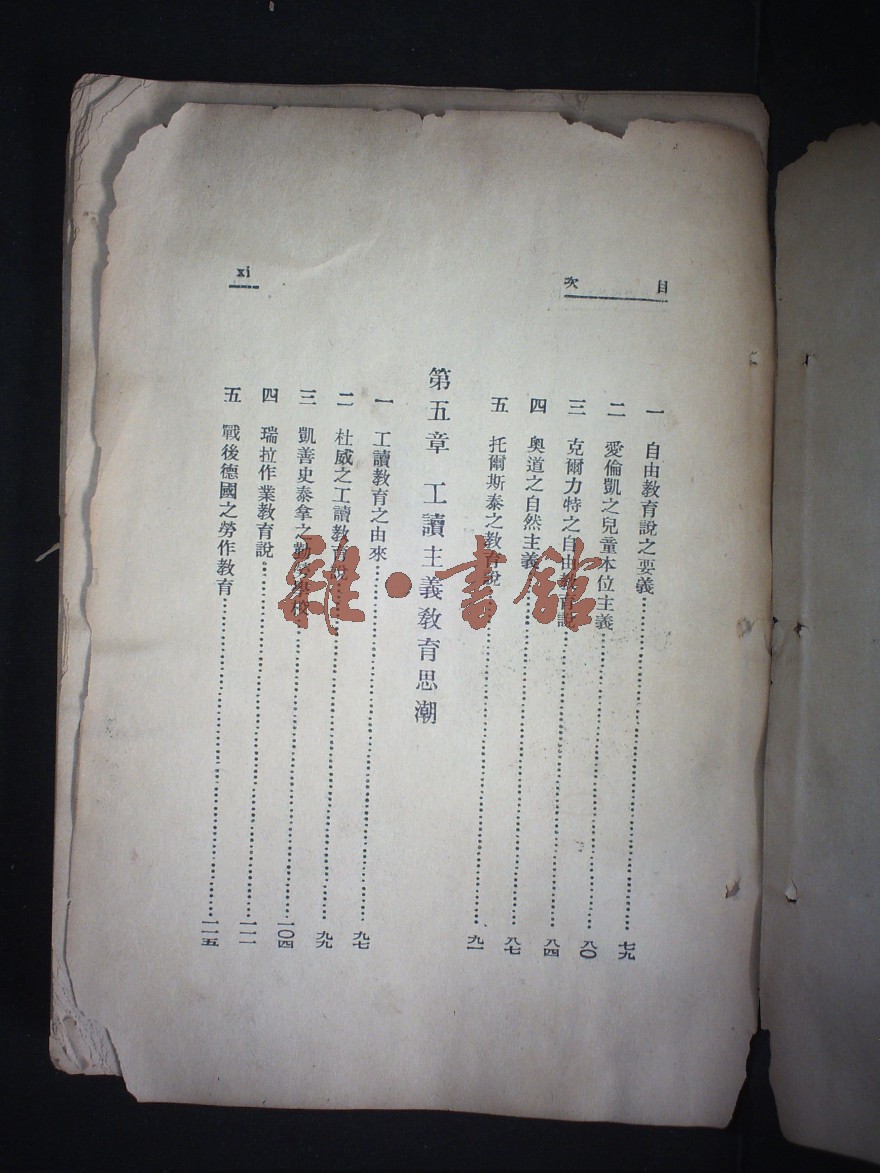 目次
一 自由教育說之要義 七九
二 愛倫凱之兒童本位主義 八〇
三 克爾力特之自由教育說 八四
四 奧道之自然主義 八七
五 托爾斯泰之教育說 九一
第五章 工讀主義教育思潮
一 工讀教育之由來 九七
二 杜威之工讀教育說 九九
三 凱善史泰拿之勤勞學校 一〇四
四 瑞拉作業教育說 一一一
五 戰後德國之勞作教育 一一五
xi
雜·書館